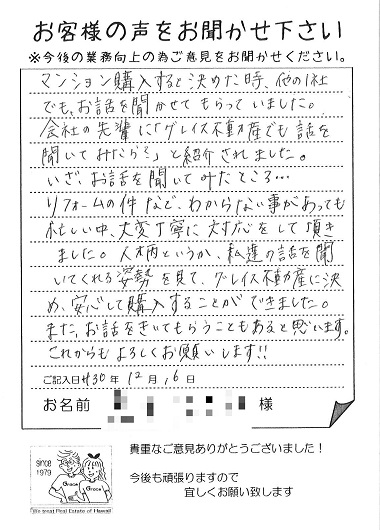 お客様の声をお聞かせ下さい
※今後の業務向上の為ご意見をお聞かせください。
マンション購入すると決めた時、他の1社
でも、お話を聞かせてもらっていました。
会社の先輩に「グレイス不動産でも話を
聞いてみたら?」と紹介されました。
いざ、お話を聞いてみたところ…
リフォームの件など、わからない事があっても
忙しい中、大変丁寧に対応をして頂き
ました。人柄というか、私達の話を聞
いてくれる姿勢を見て、グレイス不動産に決
め、安心して購入することができました。
また、お話をきいてもらうこともあると思います。
これからもよろしくお願いします!!
ご記入日 H30年 12月 16日
お名前 様
貴重なご意見ありがとうございました!
今後も頑張りますので
宜しくお願い致します
since
1979
Grace
Grace
We treat Real Estate of Hawaii